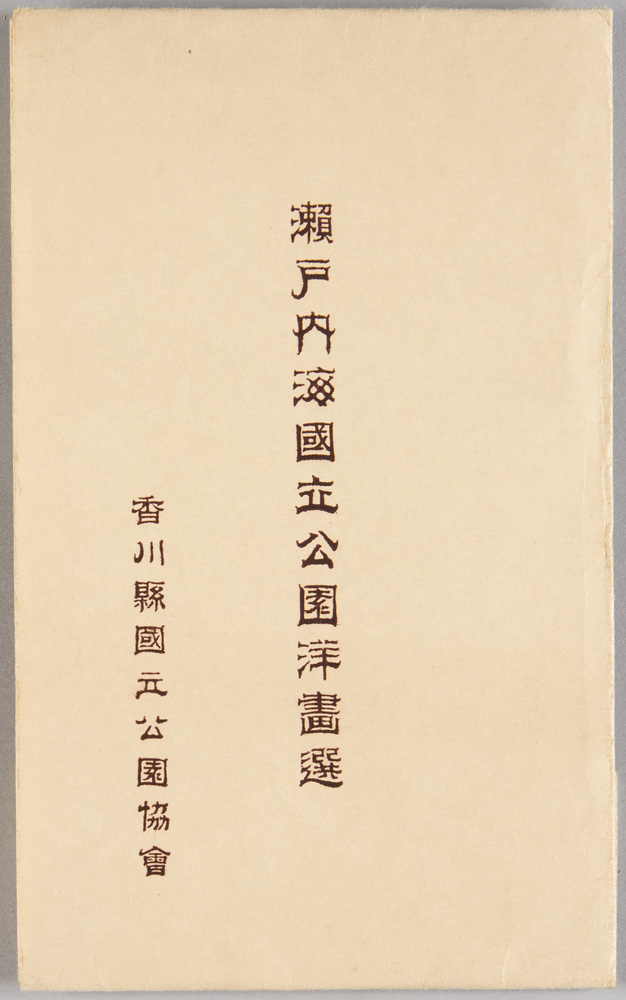 瀨戶內海國立公園洋畫選
香川縣國立公園協會